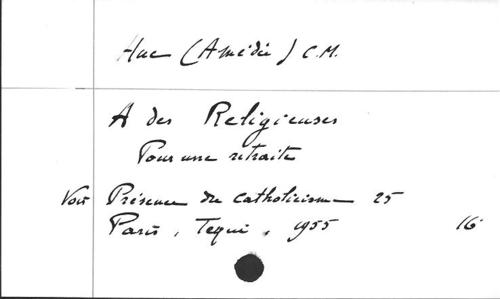 Huc (Amédée) C.M.
A des Religieuses
Pour une retraite
Voir Présence du catholicisme 25
Paris, Tequi, 1955 16°